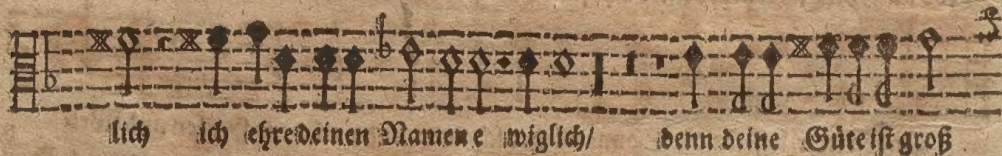 lich ich ehre deinen Namen e wiglich/ denn deine Güte ist groß